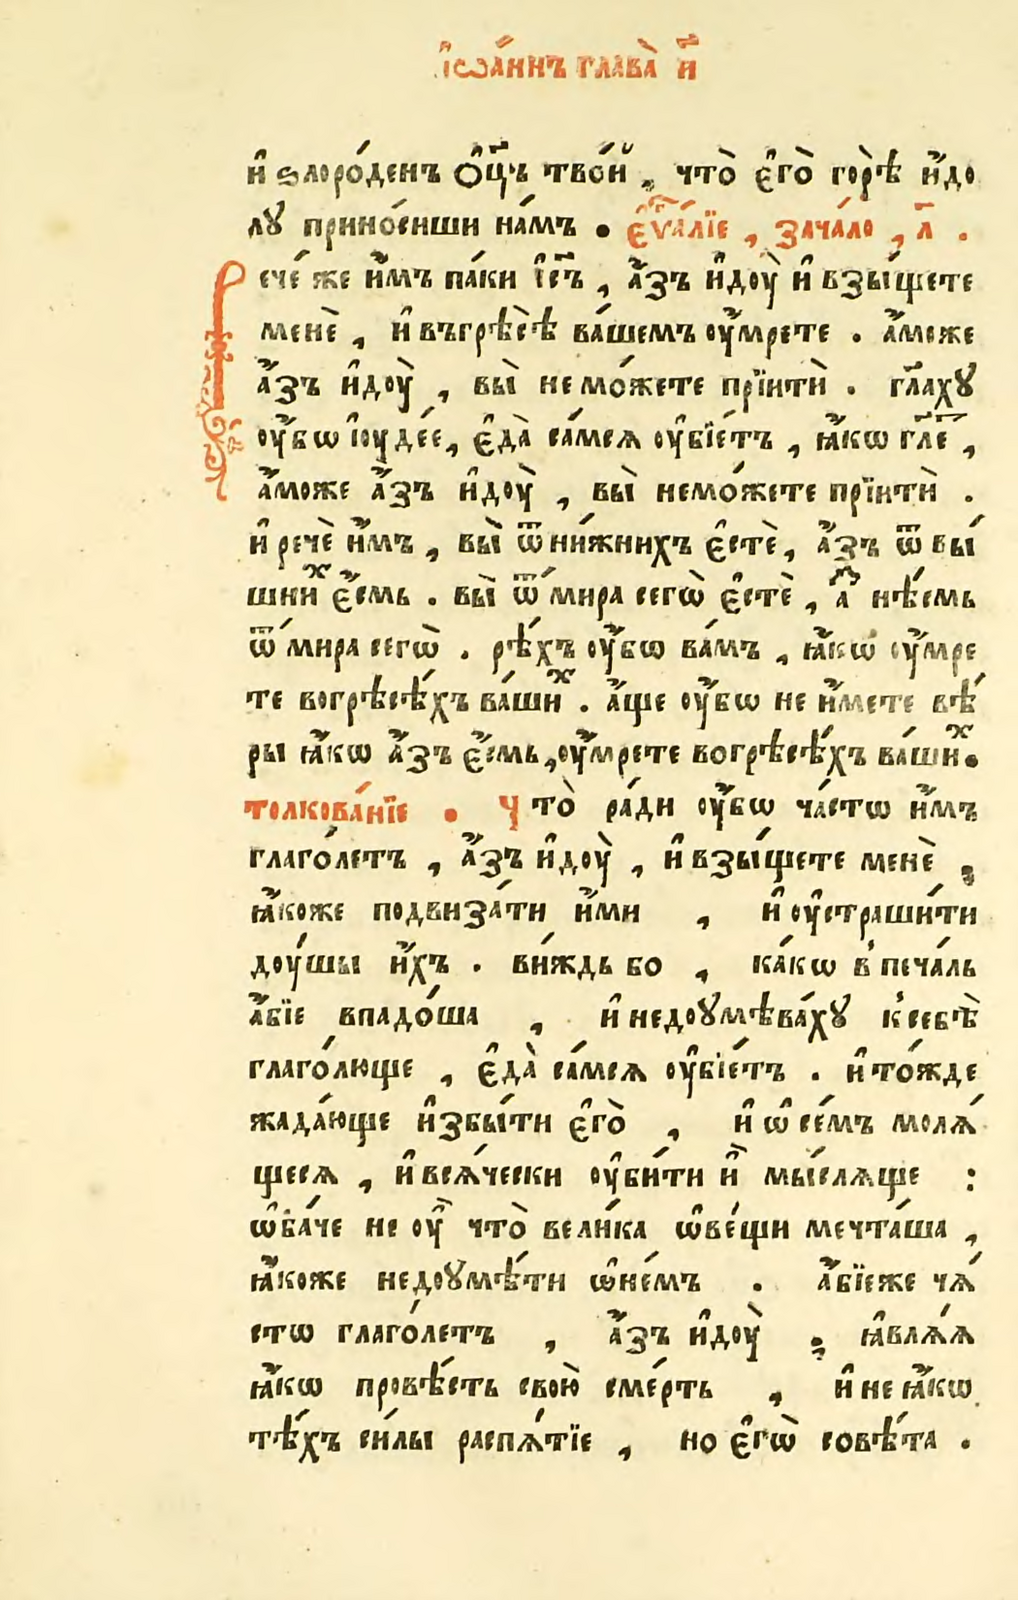 І҆ѡа́ннъ глава̀ и҃
и҆ ѕлоро́денъ ѻ҆ц҃ъ тво́й , что̀ є҆го̀ го́рѣ и҆ до
лꙋ прино́сиши на́мъ . є҆ѵⷢ҇а́лїе , зача́ло , л҃ .
Рече́ же и҆̀мъ па́ки і҆с҃ъ , а҆́зъ и҆доу̀ и҆ взы́щете
менѐ , и҆ въгрѣ́сѣ ва́шемъ оу҆́мрете . а҆́може
а҆́зъ и҆доу̀ , вы̀ не мо́жете прїитѝ . гл҃ахꙋ
оу҆́бѡ і҆оуде́е, є҆да̀ са́мсѧ оу҆бїе́тъ , ꙗ҆́кѡ гл҃е ,
а҆́може а҆́зъ и҆доу̀ , вы̀ немо́жете прїитѝ .
и҆ речѐ и҆̀мъ , вы̀ ѿ ни́жнихъ є҆стѐ, а҆́зъ ѿ вы́
шниⷯ є҆́смь . вы̀ ѿ ми́ра сегѡ̀ є҆стѐ , а҆́ⷥ нѣ́смь
ѿ ми́ра сегѡ̀ . рѣ́хъ оу҆́бѡ ва́мъ , ꙗ҆́кѡ оу҆́мре
те вогрѣсѣ́хъ ва́шиⷯ . а҆́ще оу҆́бѡ не и҆́мете вѣ́
ры ꙗ҆́кѡ а҆́зъ є҆́смь, оу҆́мрете вогрѣсѣ́хъ ва́шиⷯ.
толкова́нїе . Что̀ ра́ди оу҆́бѡ ча́стѡ и҆̀мъ
глаго́летъ , а҆́зъ и҆доу̀ , и҆ взы́щете менѐ ,
ꙗ҆́коже подвиза́ти и҆́ми , и҆ оу҆страши́ти
доу́шы и҆́хъ . ви́ждь бо , ка́кѡ в̾ печа́ль
а҆́бїе впадо́ша , и҆ недоꙋмѣва́хꙋ к̾ себѣ̀
глаго́люще , є҆да̀ са́мсѧ оу҆бїе́тъ . и҆ то́жде
жада́юще и҆збы́ти є҆го̀ , и҆ ѡ҆ се́мъ молѧ́
щесѧ , и҆ всѧ́чески оу҆би́ти и҆̀ мы́слѧще :
ѡ҆ба́че не оу҆̀ что̀ вели́ка ѡ҆ве́щи мечта́ша ,
ꙗ҆́коже недоꙋмѣ́ти ѡ҆не́мъ . а҆́бїеже чѧ́
стѡ глаго́летъ , а҆́зъ и҆доу̀ , ꙗ҆влѧ́ѧ
ꙗ҆́кѡ провѣ́сть свою̀ сме́рть , и҆ не ꙗ҆́кѡ
тѣ́хъ си́лы распѧ́тїе , но є҆гѡ̀ совѣ́та .